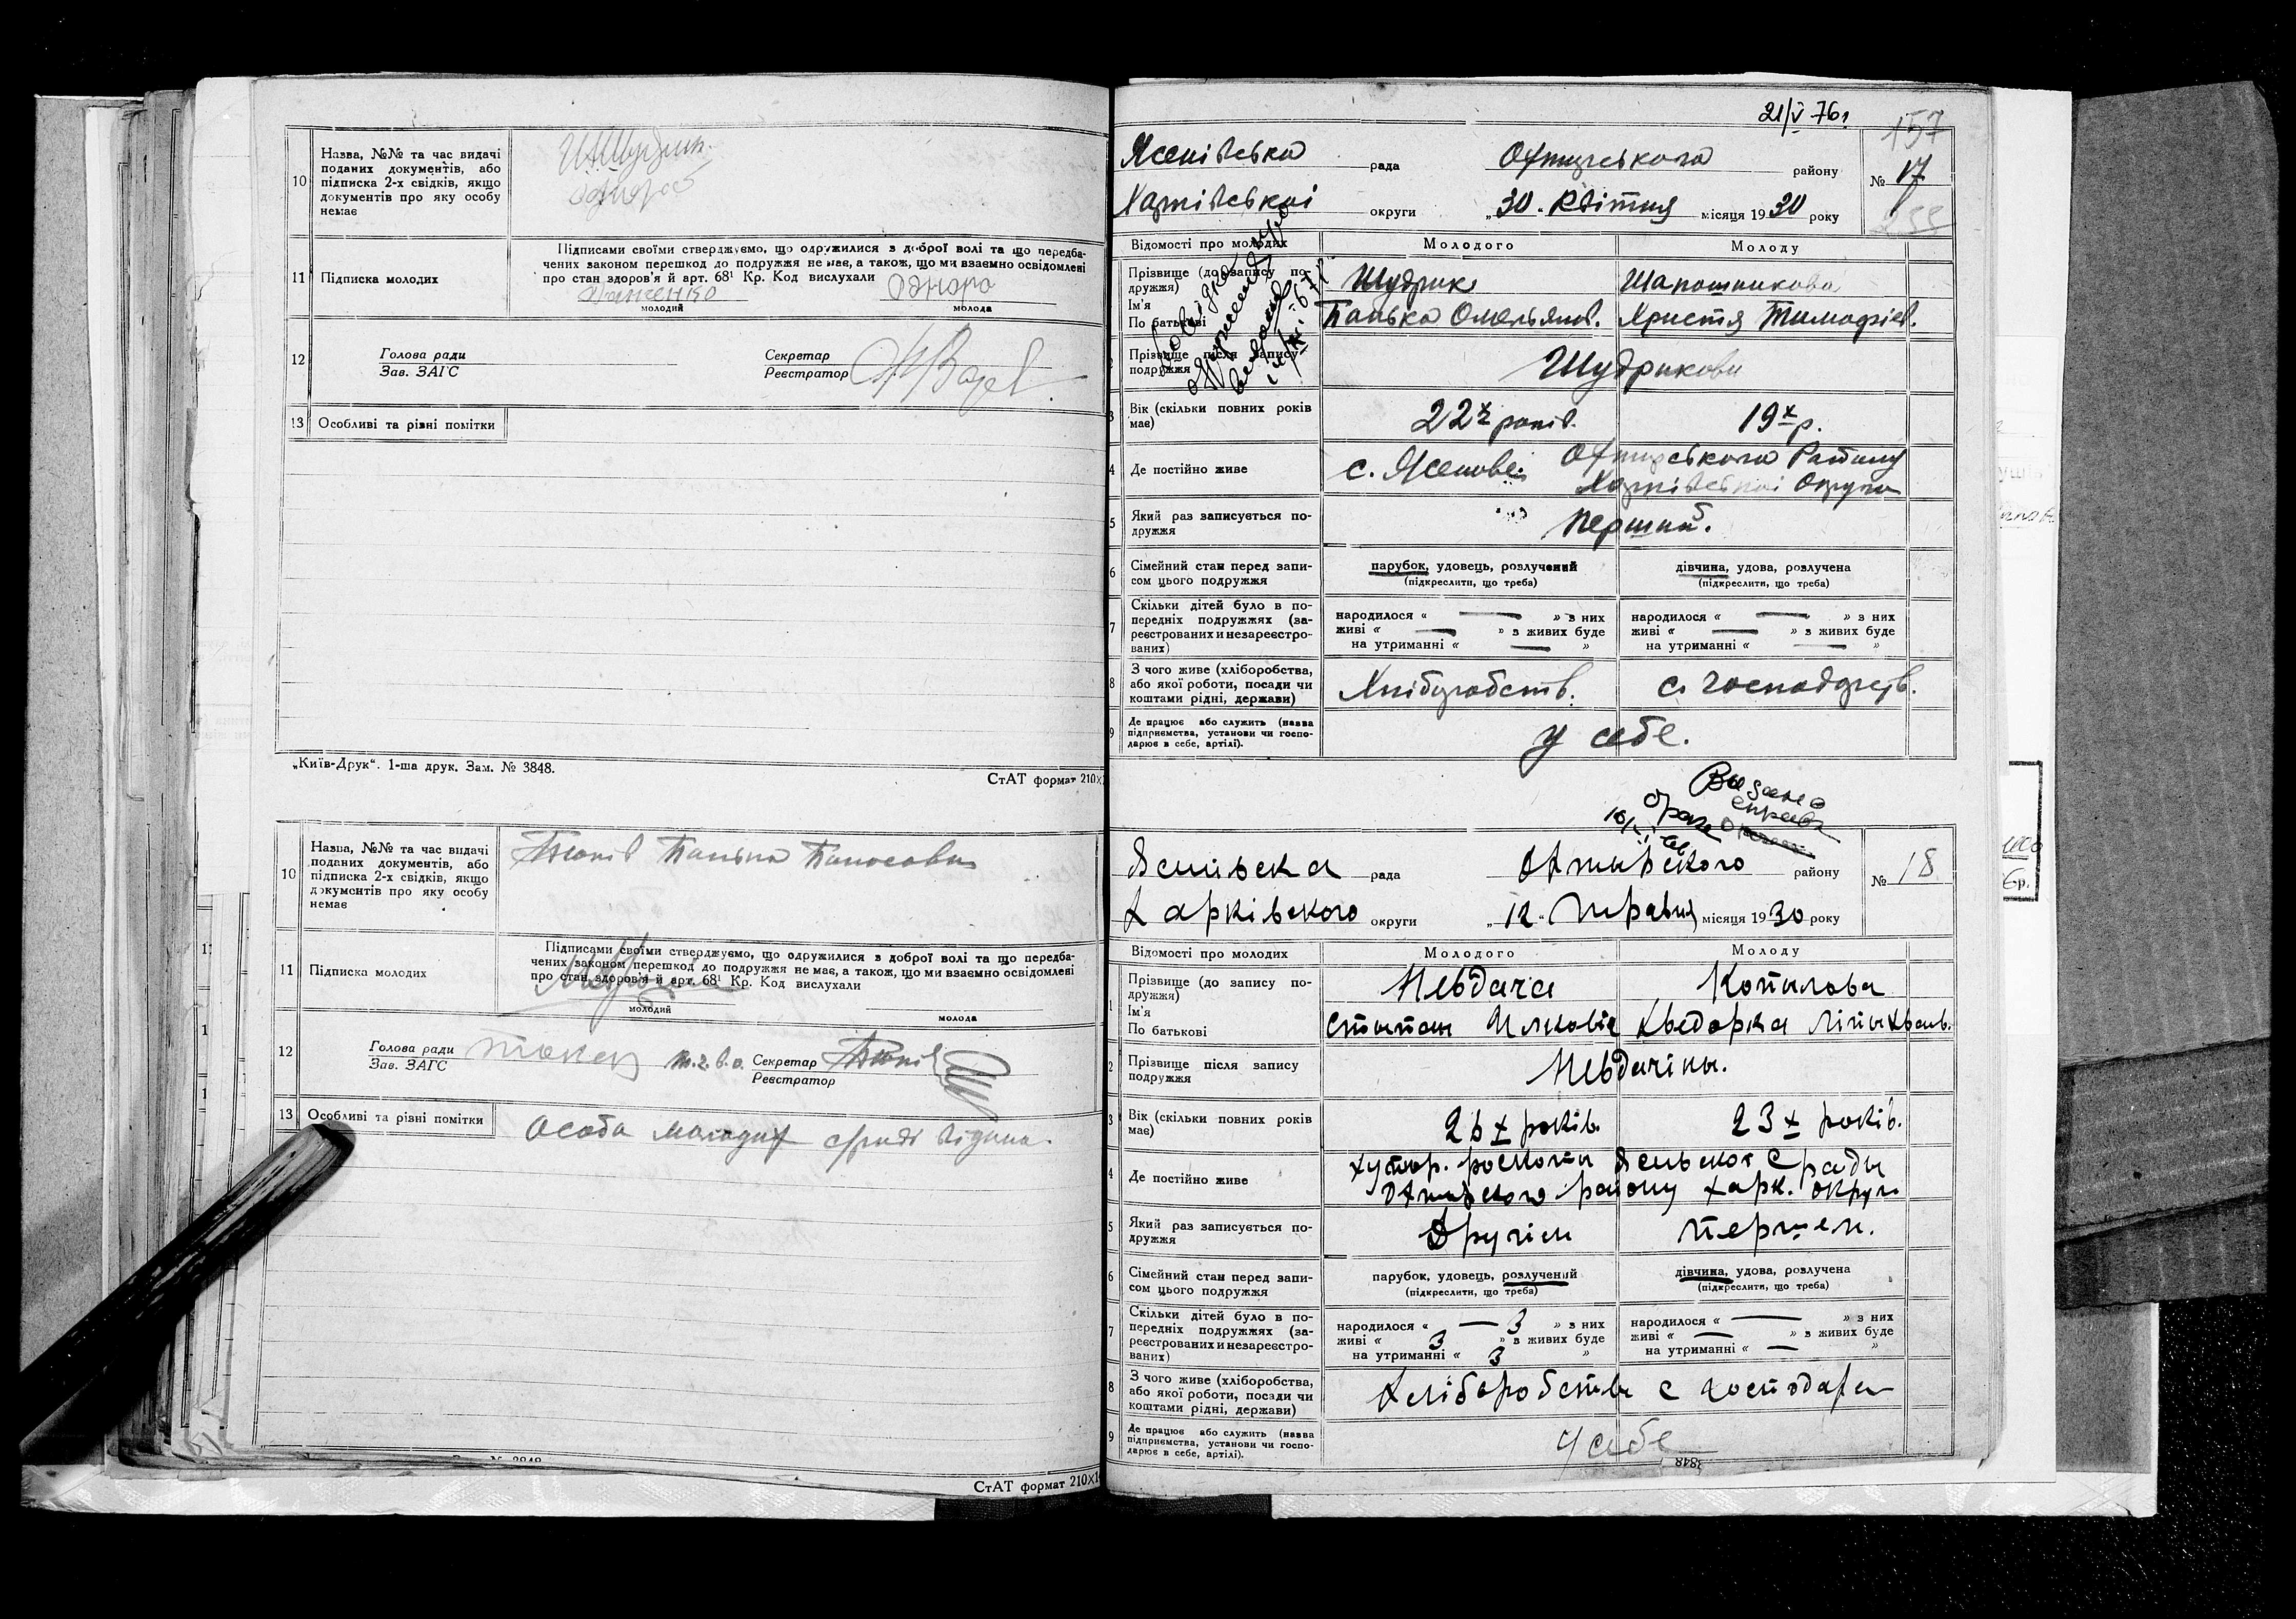 10
Назва, №№ та час видачі
поданих документів, або
підписка 2-х свідків, якщо
документів про яку особу
немає
11
Підписка молодих
Підписами своїми стверджуємо, що одружилися з доброї волі та що передба-
чених законом перешкод до подружжя не має, а також, що ми взаємно освідомлені
про стан здоров'я й арт. 68¹ Кр. Код вислухали
молодий
молода
12
Голова ради
Зав. ЗАГС
Секретар
Реєстратор
13
Особливі та різні помітки
„Київ-Друк“. 1-ша друк. Зам. № 3848.
СтАТ формат 210×
10
Назва, №№ та час видачі
поданих документів, або
підписка 2-х свідків, якщо
документів про яку особу
немає
11
Підписка молодих
Підписами своїми стверджуємо, що одружилися з доброї волі та що передба-
чених законом перешкод до подружжя не має, а також, що ми взаємно освідомлені
про стан здоров'я й арт. 68¹ Кр. Код вислухали
молодий
молода
12
Голова ради
Зав. ЗАГС
т.в.о.
Секретар
Реєстратор
13
Особливі та різні помітки
Особа молодих
СтАТ формат 210×1
21/V 76г
157
Ясенівська рада Охтирського району
№ 17
Харківської округи „30“ Квітня місяця 1930 року
Відомості про молодих
Молодого
Молоду
Прізвище (до запису по-
дружжя)
Ім'я
По батькові
Шудрик
Шапошникова
Панько Омельянов.
Христя Тимофієв.
Прізвище після запису
подружжя
Шудрикови
3
Вік (скільки повних років
має)
22х років.
19х р.
4
Де постійно живе
с. Ясенове
Охтирського Району
Харківської Округи
5
Який раз записується по-
дружжя
Перший.
6
Сімейний стан перед запи-
сом цього подружжя
парубок, удовець, розлучений
(підкреслити, що треба)
дівчина, удова, розлучена
(підкреслити, що треба)
7
Скільки дітей було в по-
передніх подружжях (за-
реєстрованих и незареєстро-
ваних)
народилося « — » з них
живі « — » з живих буде
на утриманні « — »
народилося « — » з них
живі « — » з живих буде
на утриманні « — »
8
З чого живе (хліборобства,
або якої роботи, посади чи
коштами рідні, держави)
Хліборобств.
с. господарств.
9
Де працює або служить (назва
підприємства, установи чи госпо-
дарює в себе, артілі).
у себе.
рада
району
№ 18
Харківского округи „12“ Травня місяця 1930 року
Відомості про молодих
Молодого
Молоду
1
Прізвище (до запису по-
дружжя)
Ім'я
По батькові
Невдача
Копилова
2
Прізвище після запису
подружжя
Невдачіни.
3
Вік (скільки повних років
має)
26х років.
23х років.
4
Де постійно живе
району харк. округи
5
Який раз записується по-
дружжя
Другім
першем.
6
Сімейний стан перед запи-
сом цього подружжя
парубок, удовець, розлучений
(підкреслити, що треба)
дівчина, удова, розлучена
(підкреслити, що треба)
7
Скільки дітей було в по-
передніх подружжях (за-
реєстрованих и незареєстро-
ваних)
народилося « — 3 » з них
живі « 3 » з живих буде
на утриманні « 3 »
народилося « — » з них
живі « — » з живих буде
на утриманні « — »
8
З чого живе (хліборобства,
або якої роботи, посади чи
коштами рідні, держави)
хліборобства с господара
9
Де працює або служить (назва
підприємства, установи чи госпо-
дарює в себе, артілі).
у себе
3848